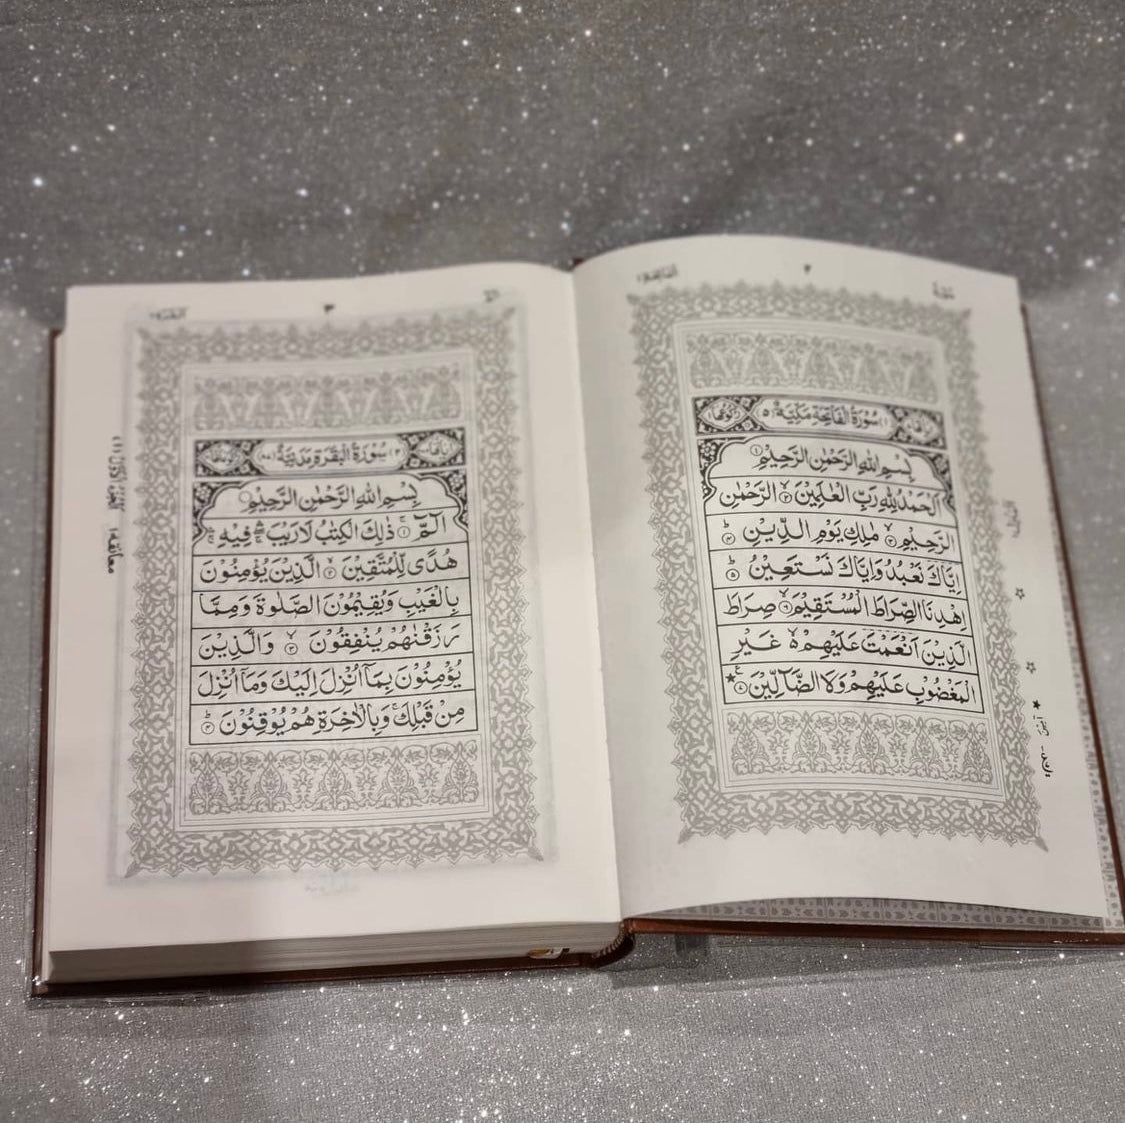 الفاتحة ١
٢
سُوْرَةُ الْفَاتِحَةِ مَكِّيَّةٌ (٥)
بِسْمِ اللهِ الرَّحْمٰنِ الرَّحِيْمِ ١
اَلْحَمْدُ لِلّٰهِ رَبِّ الْعٰلَمِيْنَ ٢ الرَّحْمٰنِ
الرَّحِيْمِ ٣ مٰلِكِ يَوْمِ الدِّيْنِ ٤
اِيَّاكَ نَعْبُدُ وَاِيَّاكَ نَسْتَعِيْنُ ٥
اِهْدِنَا الصِّرَاطَ الْمُسْتَقِيْمَ ٦ صِرَاطَ
الَّذِيْنَ اَنْعَمْتَ عَلَيْهِمْ ۵ غَيْرِ
الْمَغْضُوْبِ عَلَيْهِمْ وَلَا الضَّآلِّيْنَ
البقرة ٢
٣
سُوْرَةُ الْبَقَرَةِ مَدَنِيَّةٌ (٨٧)
بِسْمِ اللهِ الرَّحْمٰنِ الرَّحِيْمِ
الٓمّٓ ١ ذٰلِكَ الْكِتٰبُ لَا رَيْبَ فِيْهِ
هُدًى لِّلْمُتَّقِيْنَ ٢ الَّذِيْنَ يُؤْمِنُوْنَ
بِالْغَيْبِ وَيُقِيْمُوْنَ الصَّلٰوةَ وَمِمَّا
رَزَقْنٰهُمْ يُنْفِقُوْنَ ٣ وَالَّذِيْنَ
يُؤْمِنُوْنَ بِمَآ اُنْزِلَ اِلَيْكَ وَمَآ اُنْزِلَ
مِنْ قَبْلِكَ وَبِالْاٰخِرَةِ هُمْ يُوْقِنُوْنَ ٤